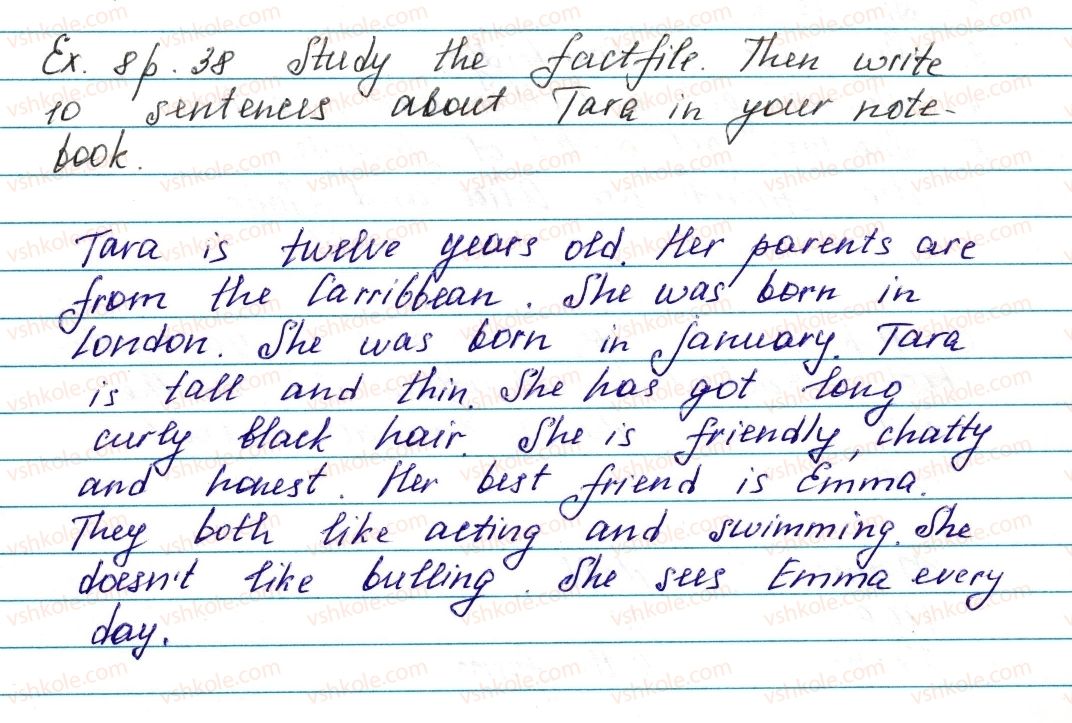 Ex. 8 p. 38 Study the factfile. Then write
10 sentences about Tara in your note-
book.
Tara is twelve years old. Her parents are
from the Carribbean. She was born in
London. She was born in january. Tara
is tall and thin. She has got long
curly black hair. She is friendly, chatty
and honest. Her best friend is Emma.
They both like acting and swimming. She
doesn't like bulling. She sees Emma every
day.